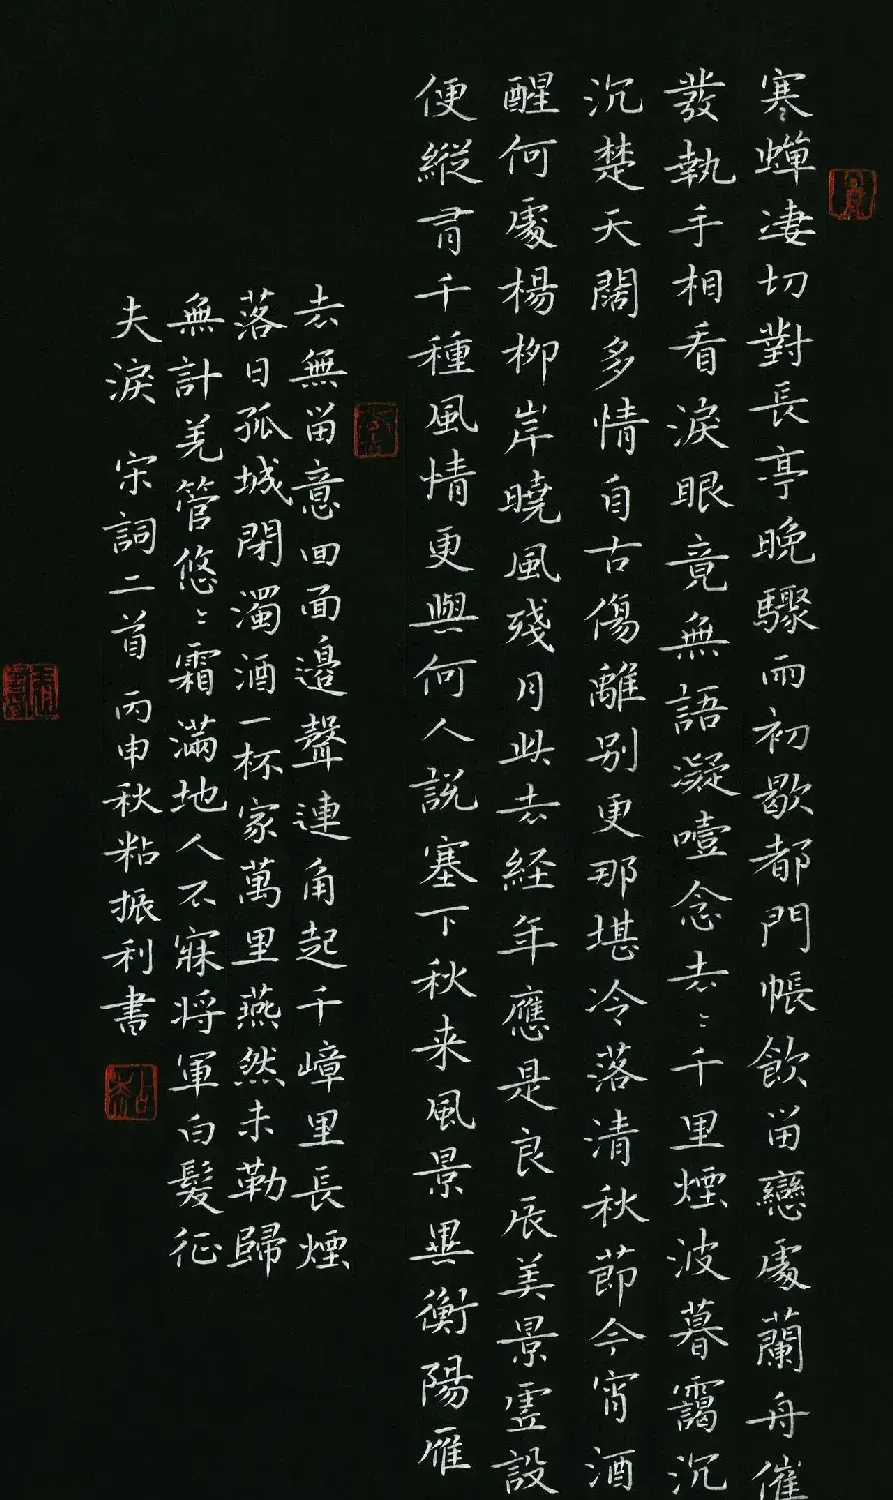 寒蟬淒切對長亭晚驟雨初歇都門帳飲留戀處蘭舟催
發執手相看淚眼竟無語凝噎念去〻千里煙波暮靄沉
沉楚天闊多情自古傷離別更那堪冷落清秋節今宵酒
醒何處楊柳岸曉風殘月此去経年應是良辰美景虛設
便縱有千種風情更與何人說塞下秋来風景異衡陽雁
去無留意四面邊聲連角起千嶂里長煙
落日孤城閉濁酒一杯家萬里燕然未勒歸
無計羌管悠〻霜滿地人不寐将軍白髮征
夫淚 宋詞二首 丙申秋粘振利書